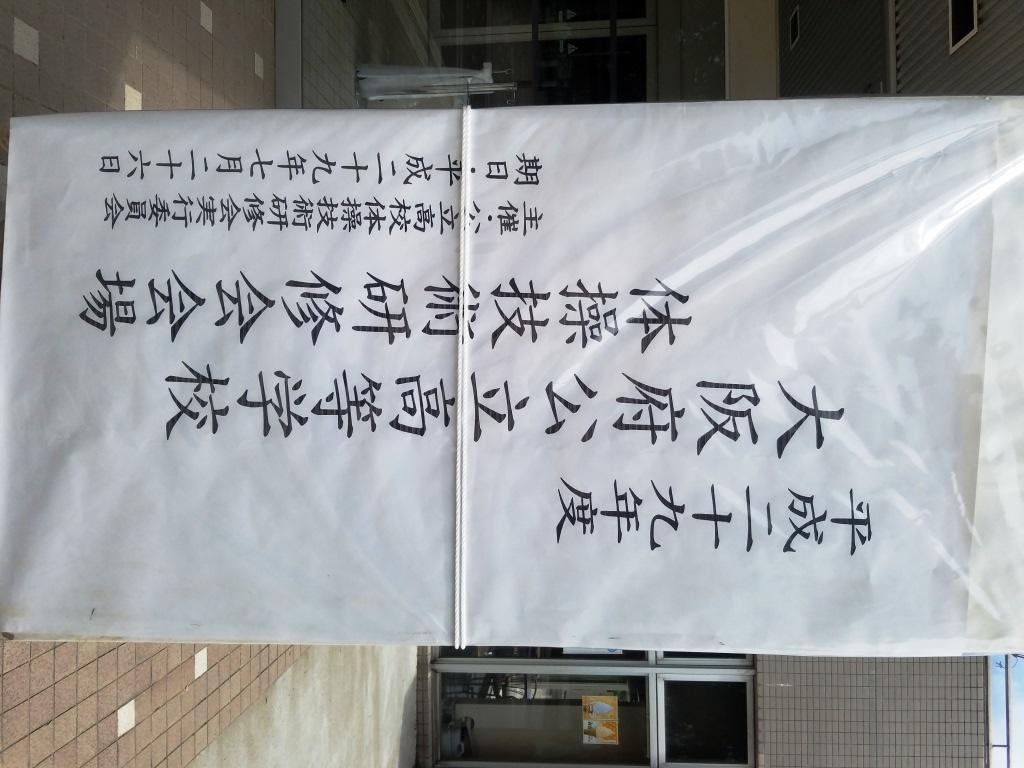 平成二十九年度
大阪府公立高等学校
体操技術研修会会場
主催・公立高校体操技術研修会実行委員会
期日・平成二十九年七月二十六日